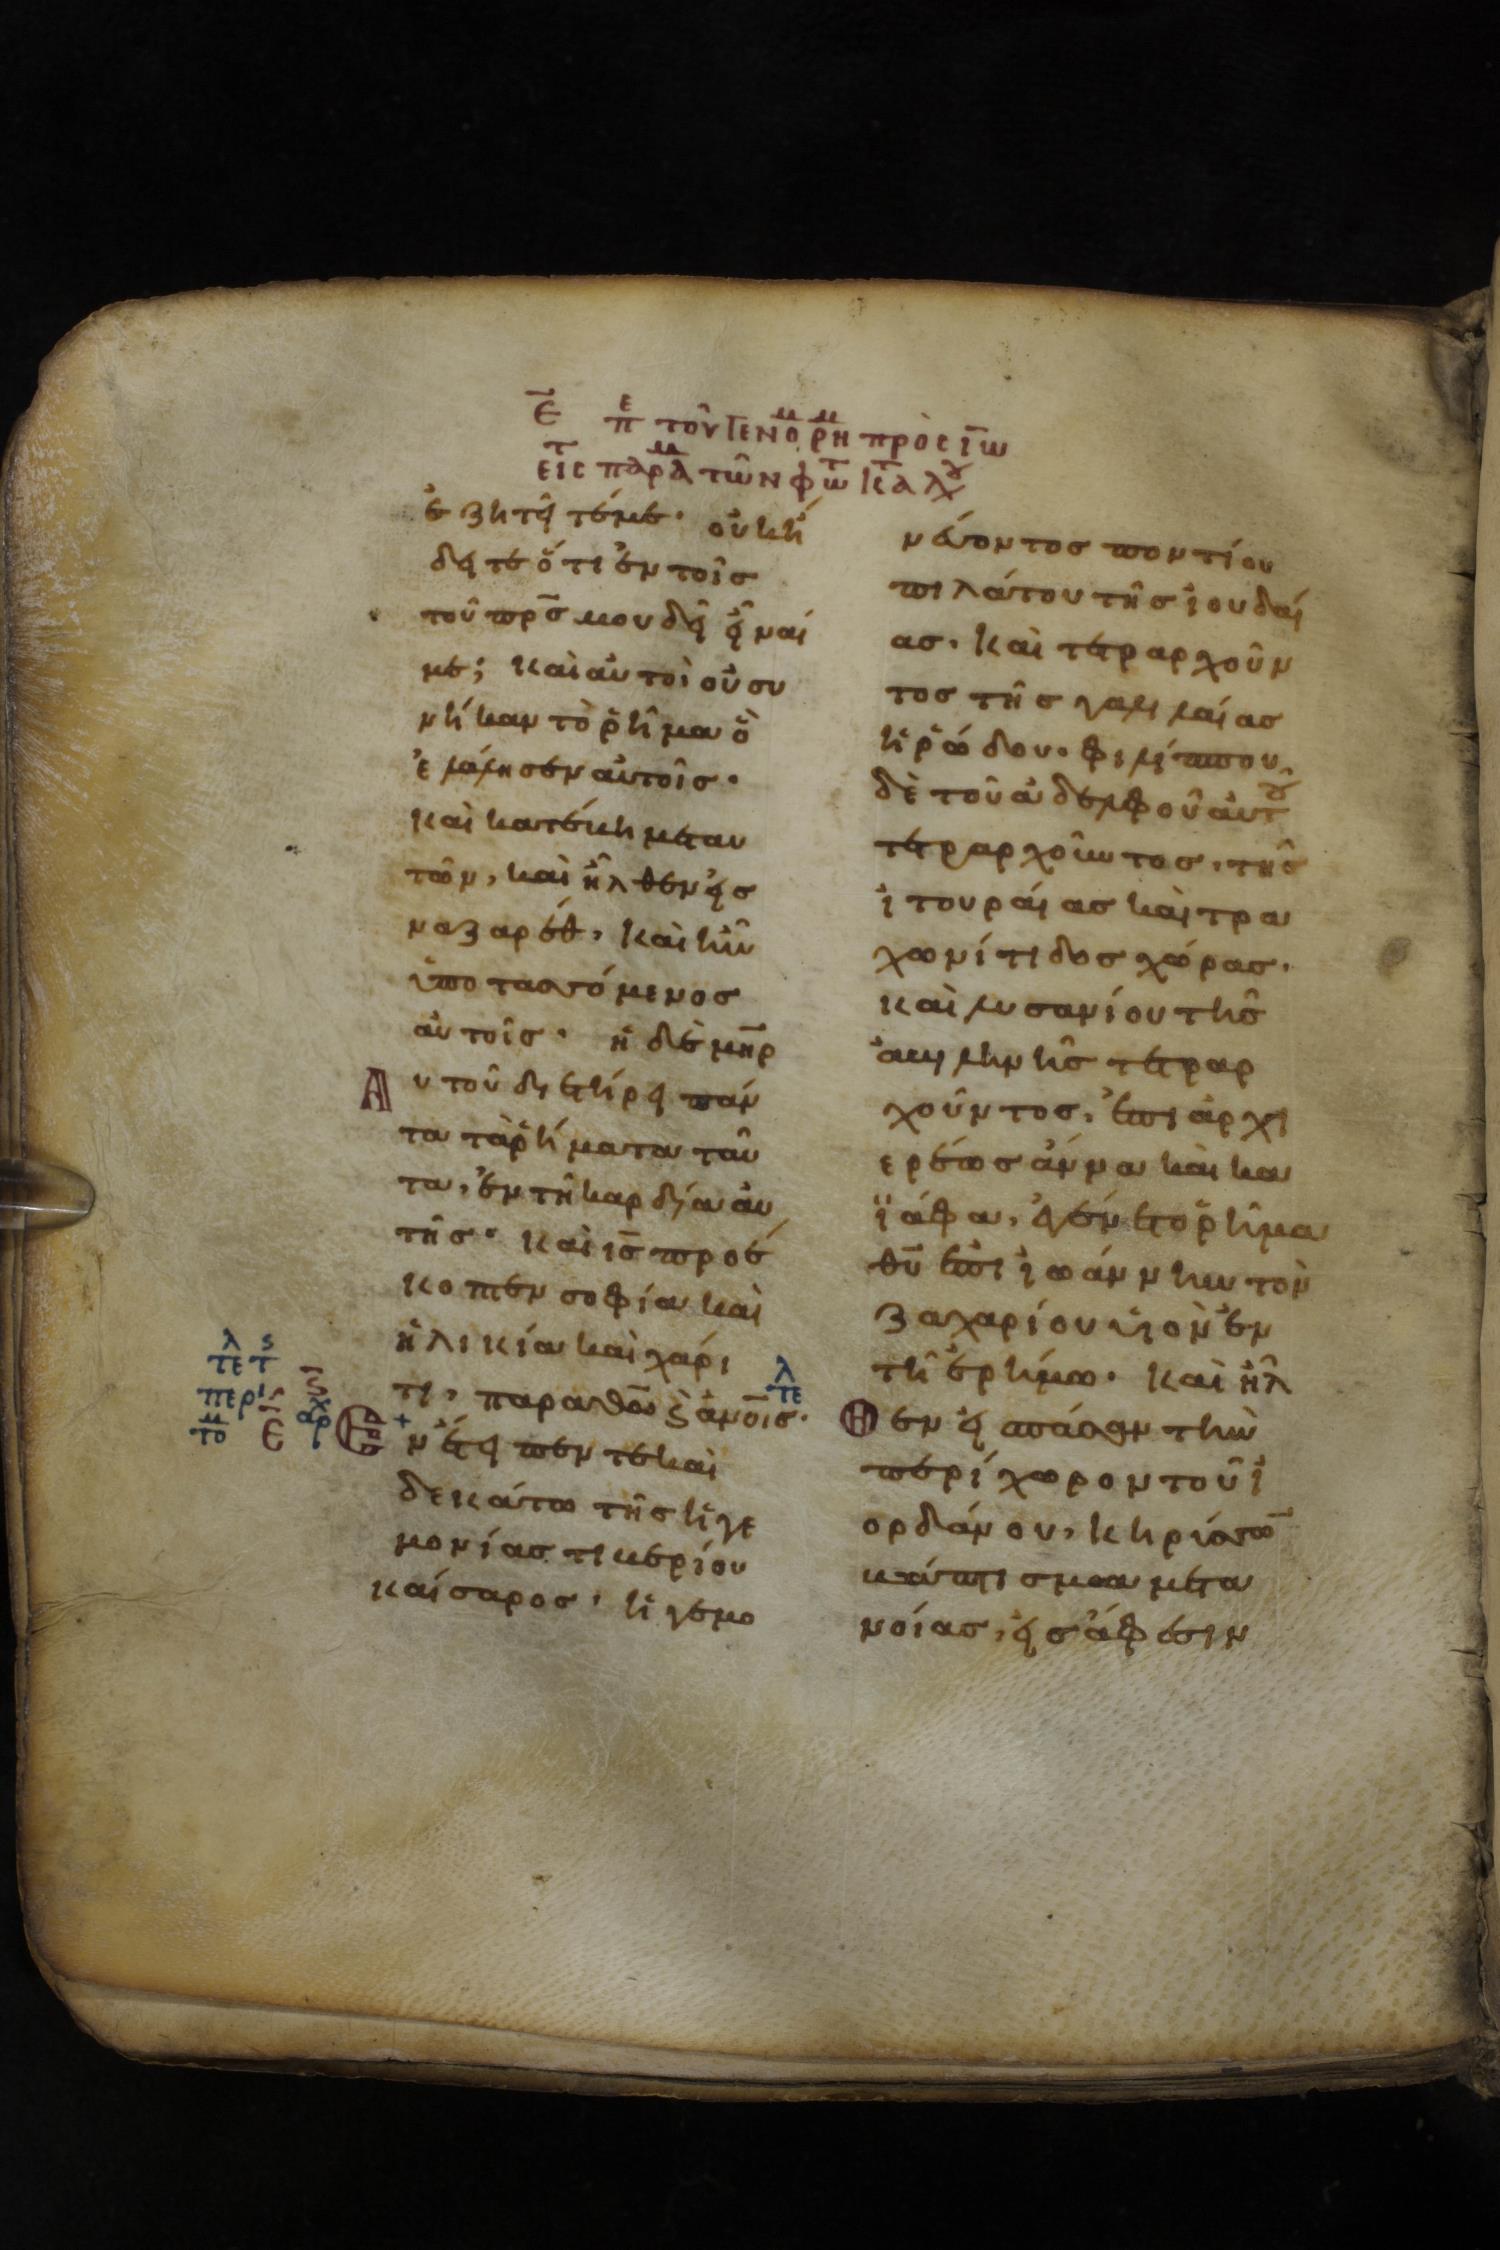 Ε̅ πε τοῦ ΓΕΝΟμ ρμη πρὸς ἰω̅
εις τ παρμα τῶν φωτ κτ α λχυ
ἐζητεῖτέ με· οὐκ ἤ
δειτε ὅτι ἐν τοῖς
τοῦ πρ̅ς μου δεῖ εἶναί
με; καὶ αὐτοὶ οὐ συ
νῆκαν τὸ ῥῆμα ὃ
ἐλάλησεν αὐτοῖς·
καὶ κατέβη μετ αυ
τῶν, καὶ ἦλθεν εἰς
ναζαρέθ, καὶ ἦν
ὑποτασσόμενος
αὐτοῖς· ἡ δὲ μη̅ρ
Αυτοῦ διετήρει πάν
τα τὰ ῥήματα ταῦ
τα, ἐν τῆ καρδία αὐ
τῆς· καὶ ις̅ προέ
κοπτεν σοφία καὶ
ἡλικία καὶ χάρι
τι, παρα θω̅ ϗ ἀνοι̅ς· τελ
τελ τς
περὶ ϛ̅
τομ ε̅ αρχ
Ἐν ἔτει πεντε και
δεκάτω τῆς ἡγε
μονίας τιβερίου
καίσαρος, ἡγεμο
νεύοντος ποντίου
πιλάτου τῆς ἰουδαί
ας, καὶ τετραρχοῦν
τος τῆς γαλιλαίας
ἡρώδου· φιλίππου
δὲ τοῦ ἀδελφοῦ αὐτοῦ
τετραρχοῦντος, τῆς
ἰτουραίας καὶ τρα
χωνίτιδος χώρας·
καὶ λυσανίου τῆς
ἀβιληνῆς τετραρ
χοῦντος, ἐπι ἀρχι
ερέως ἄννα καὶ κα
ϊάφα, ἐγένετο ῥῆμα
θυ̅ ἐπὶ ἰωάννην τὸν
ζαχαρίου υἱὸν ἐν
τῆ ἐρήμω· καὶ ἦλ
Θεν εἰ πάσαν τὴν
περίχωρον τοῦ ἰ
ορδάνου, κηρύσσω̅
βάπτισμα μετα
νοίας, εἰς ἄφεσιν